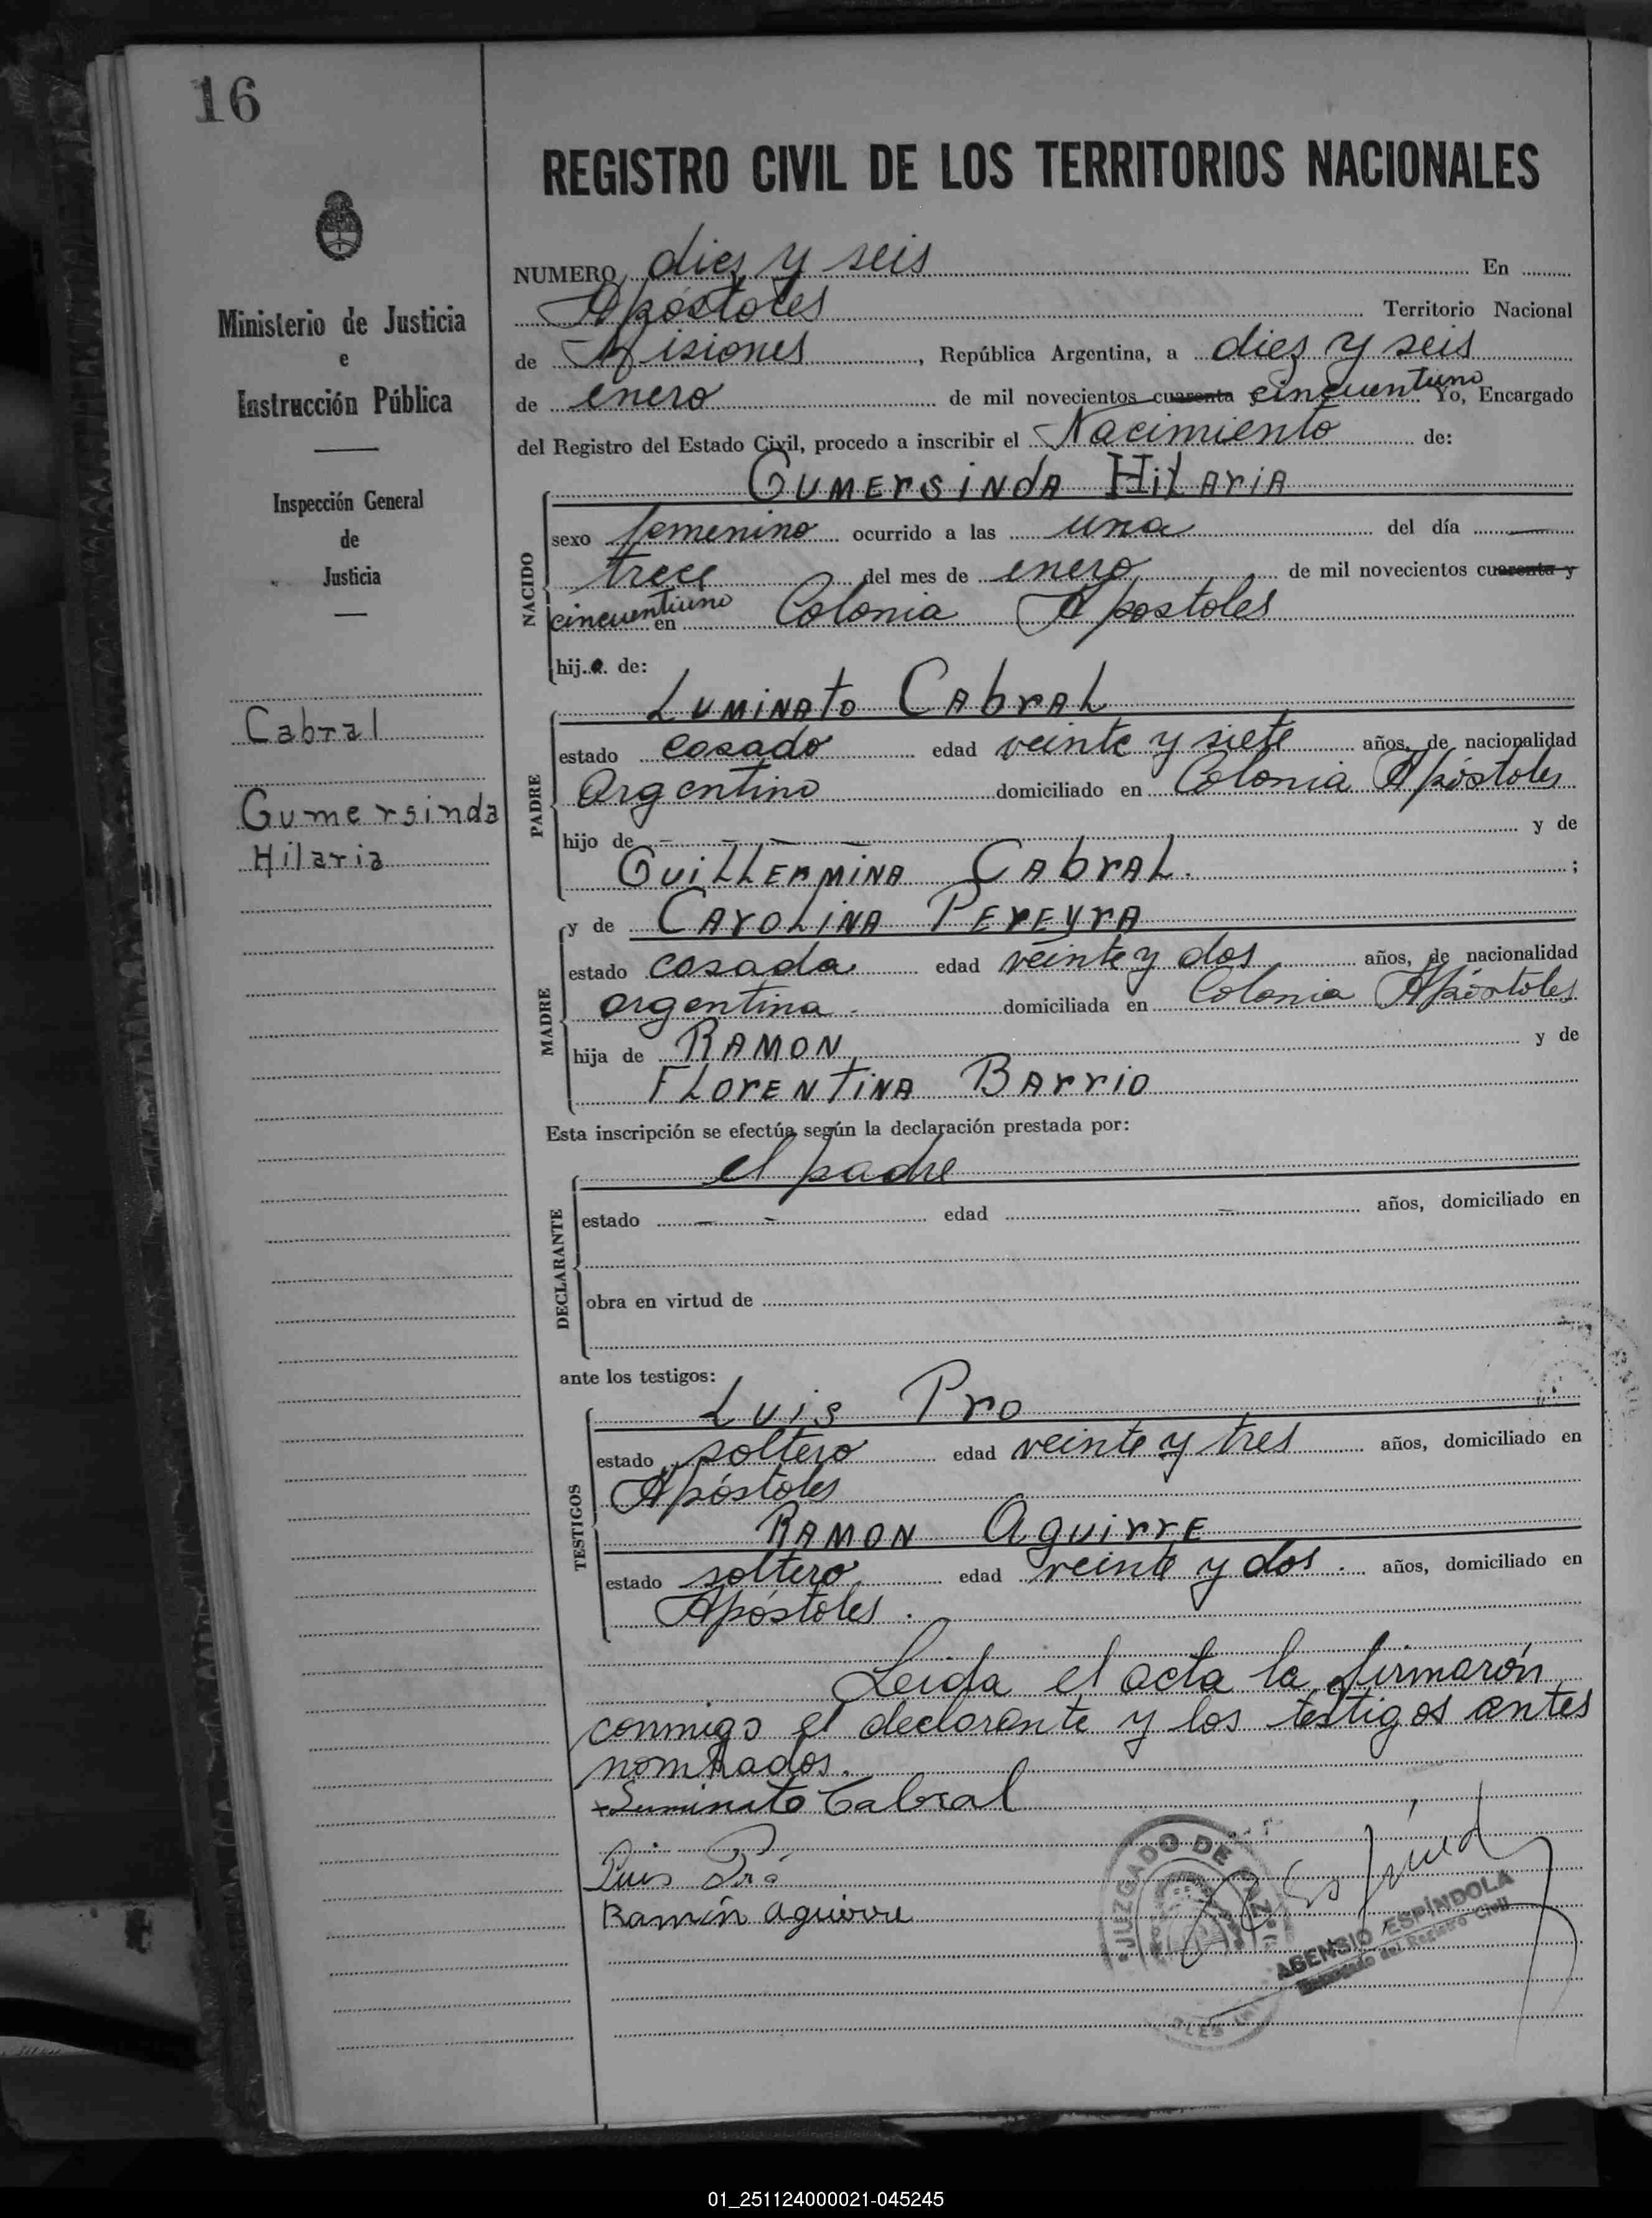 16
Ministerio de Justicia
e
Instrucción Pública
Inspección General
de
Justicia
Cabral
Gumersinda
Hilaria
REGISTRO CIVIL DE LOS TERRITORIOS NACIONALES
NUMERO diez y seis En
Apóstoles Territorio Nacional
de Misiones, República Argentina, a diez y seis
de enero de mil novecientos cuarenta cincuentiuno Yo, Encargado
del Registro del Estado Civil, procedo a inscribir el Nacimiento de:
NACIDO
GUMERSINDA HILARIA
sexo femenino ocurrido a las una del día —
trece del mes de enero de mil novecientos cuarenta y
cincuentiuno en Colonia Apostoles
hija de:
PADRE
LUMINATO CABRAL
estado casado edad veinte y siete años, de nacionalidad
Argentino domiciliado en Colonia Apóstoles
hijo de — — — — y de
GUILLERMINA CABRAL. ;
MADRE
y de CAROLINA PEREYRA
estado casada edad veinte y dos años, de nacionalidad
argentina. domiciliada en Colonia Apóstoles
hija de RAMON y de
FLORENTINA BARRIO
Esta inscripción se efectúa según la declaración prestada por:
DECLARANTE
el padre
estado — - edad — años, domiciliado en
obra en virtud de
ante los testigos:
TESTIGOS
LUIS PRO
estado soltero edad veinte y tres años, domiciliado en
Apóstoles
RAMON AGUIRRE
estado soltero edad veinte y dos. años, domiciliado en
Apóstoles.
Leida el acta la firmarón
conmigo el declarante y los testigos antes
nombrados.
Luminato Cabral
Luis Pró
Ramón Aguirre
JUZGADO DE PAZ
ASENSIO ESPÍNDOLA
Encargado del Registro Civil
01_251124000021-045245